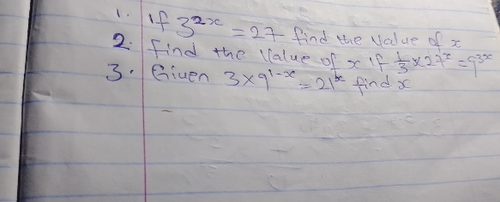 1. If 3^2x = 27 find the value of x
2. Find the value of x if 1/3 x 27^x = 9^3x
3. Given 3 x 9^1-x = 21^x find x